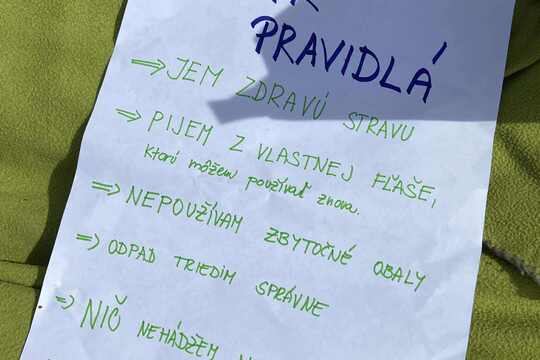 PRAVIDLÁ
⇒ JEM ZDRAVÚ STRAVU
⇒ PIJEM Z VLASTNEJ FĽAŠE,
ktorú môžem používať znova.
⇒ NEPOUŽÍVAM ZBYTOČNÉ OBALY
⇒ ODPAD TRIEDIM SPRÁVNE
⇒ NIČ NEHÁDŽEM